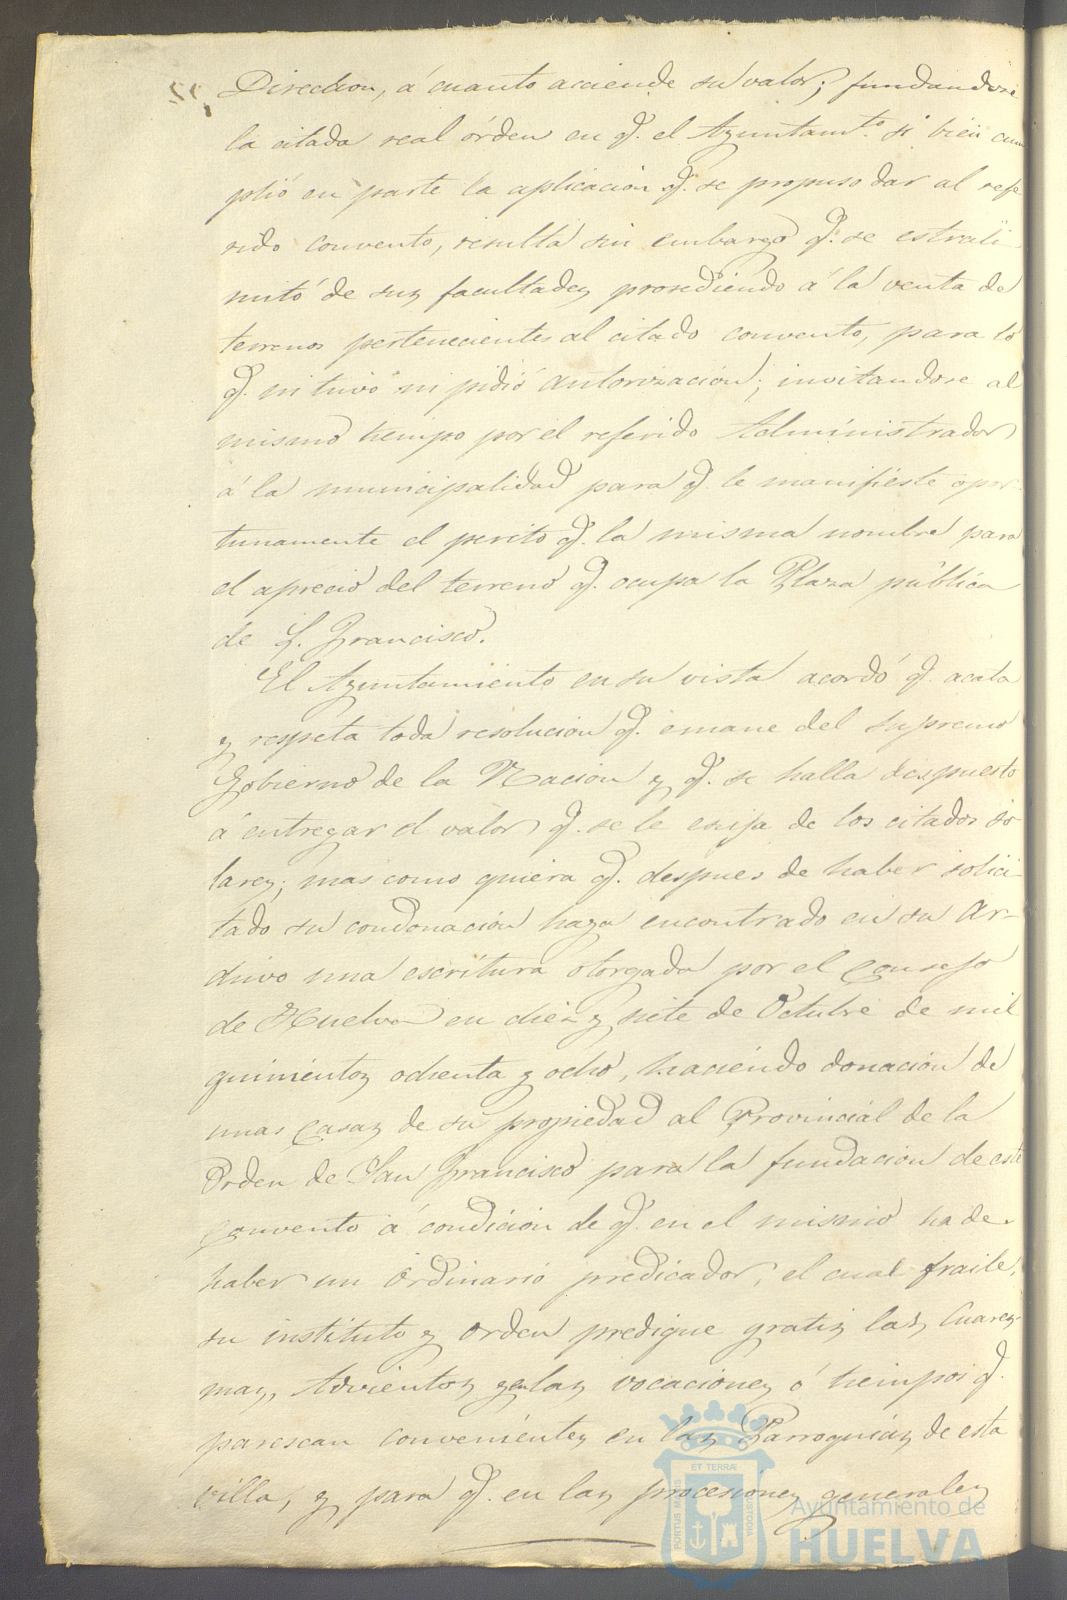 Direccion, á cuanto asciende su valor; fundandose
la citada real órden en q.e el Ayuntam.to si bien cum
plió en parte la aplicacion q.e se propuso dar al refe
rido convento, resulta sin embargo q.e se estrali
mitó de sus facultades prosediendo á la venta de
terrenos pertenecientes al citado convento, para lo
q.e ni tuvo ni pidió autorizacion; invitandose al
mismo tiempo por el referido Administrador
á la municipalidad para q.e le manifieste opor
tunamente el perito q.e la misma nombre para
el aprecio del terreno q.e ocupa la Plaza pública
de S. Francisco.
El Ayuntamiento en su vista acordó q.e acata
y respeta toda resolucion q.e emane del Supremo
Gobierno de la Nacion y q.e se halla dispuesto
á entregar el valor q.e se le exija de los citados so
lares; mas como quiera q.e despues de haber solici
tado su condonacion haya encontrado en su Ar-
chivo una escritura otorgada por el Consejo
de Huelva en diez y siete de Octubre de mil
quinientos ochenta y ocho, haciendo donacion de
unas casas de su propiedad al Provincial de la
Orden de San Francisco para la fundacion de este
convento á condicion de q.e en el mismo ha de
haber un Ordinario predicador, el cual fraile,
su instituto y orden predique gratis las Cuares-
mas, Advientos y en las vocaciones ó tiempos q.e
parescan convenientes en las Parroquias de esta
villa, y para q.e en las procesiones generales
PORTUS MARIS
ET TERRÆ
CUSTODIA
Ayuntamiento de
HUELVA